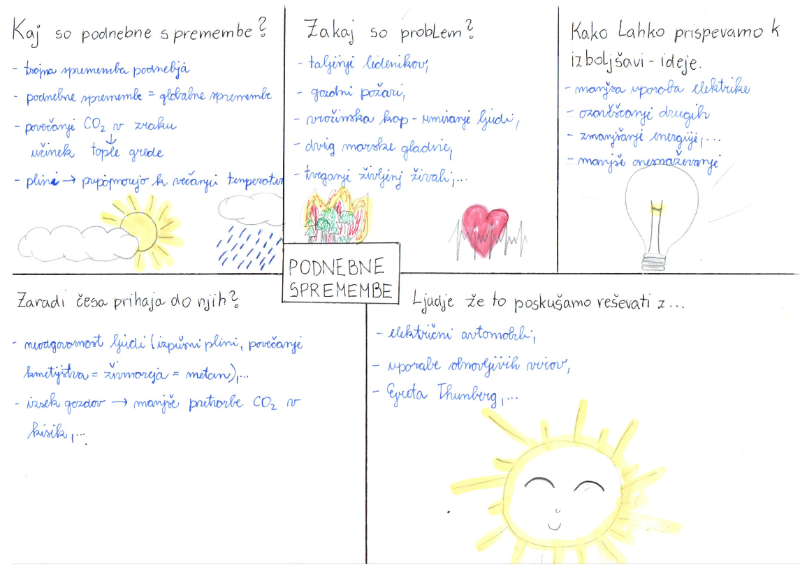 Kaj so podnebne spremembe?
- trajna sprememba podnebja
- podnebne spremembe = globalne spremembe
- povečanji CO₂ v zraku
↓
učinek tople grede
- plini → pripomorejo k večanji temperatur
Zakaj so problem?
- taljenje ledenikov,
- gozdni požari,
- vročinska kap - umiranje ljudi,
- dvig morske gladine,
- tveganji življenj živali,...
Kako lahko prispevamo k
izboljšavi - ideje.
- manjša uporaba elektrike
- ozaveščanje drugih
- zmanjšanje energije,...
- manjše onesnaževanje
PODNEBNE
SPREMEMBE
Zaradi česa prihaja do njih?
- neodgovornost ljudi (izpušni plini, povečanje
kmetijstva = živinoreja = metan),...
- izsek gozdov → manjše pretvorbe CO₂ v
kisik,...
Ljudje že to poskušamo reševati z...
- električni avtomobili,
- uporabe obnovljivih virov,
- Greta Thunberg,...